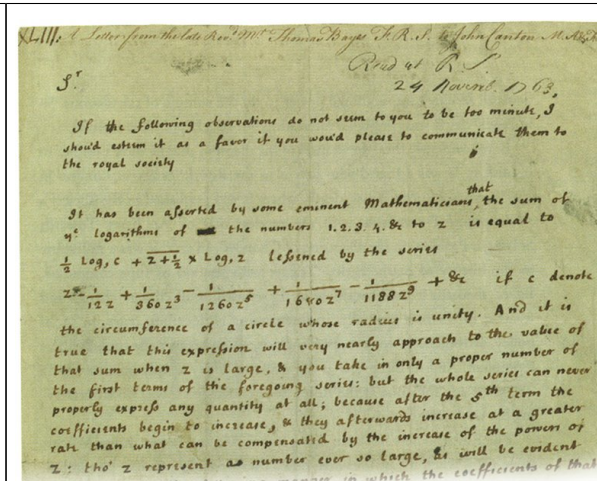 XLIII. A Letter from the late Revd. Mr. Thomas Bayes F.R.S. to John Canton M.A. &
Read at R. S.
24 Novemb. 1763.
Sr.
If the following observations do not seem to you to be too minute, I
shou'd esteem it as a favor if you wou'd please to communicate them to
the royal society
It has been asserted by some eminent Mathematicians, that the sum of
ye logarithms of the numbers 1. 2. 3. 4. &c to z is equal to
½ Log, c + z+½ × Log, z lessened by the series
z - 1/12z + 1/360z³ - 1/1260z⁵ + 1/1680z⁷ - 1/1188z⁹ + &c if c denote
the circumference of a circle whose radius is unity. And it is
true that this expression will very nearly approach to the value of
that sum when z is large, & you take in only a proper number of
the first terms of the foregoing series: but the whole series can never
properly express any quantity at all; because after the 5th term the
coefficients begin to increase, & they afterwards increase at a greater
rate than what can be compensated by the increase of the powers of
z: tho' z represent a number ever so large, as will be evident
manner in which the coefficients of that